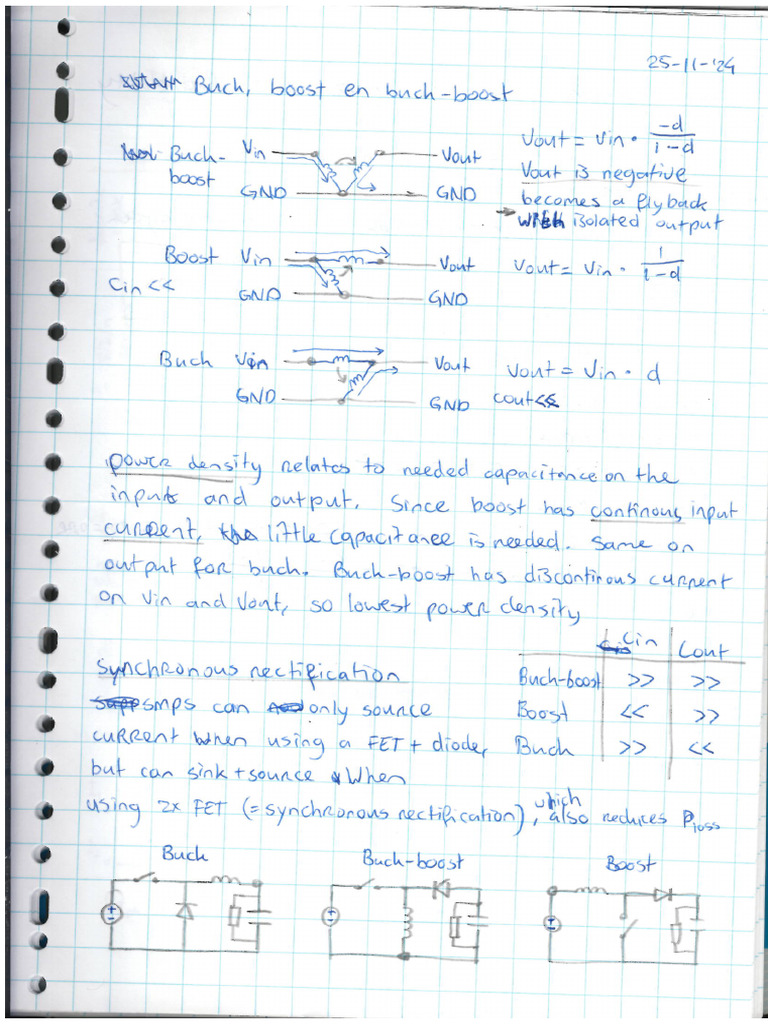 25-11-'24
Buch, boost en buch-boost
Buch-boost Vin Vout
GND GND
Vout = Vin · -d/1-d
Vout is negative
becomes a flyback
→ with isolated output
Boost Vin Vout Vout = Vin · 1/1-d
Cin << GND GND
Buch Vin Vout Vout = Vin · d
GND GND Cout <<
power density relates to needed capacitance on the
inputs and output. Since boost has continous input
current, little capacitance is needed. Same on
output for buch. Buch-boost has discontinous current
on Vin and Vout, so lowest power density
Cin Cout
Buch-boost >> >>
Boost << >>
Buch >> <<
Synchronous rectification
smps can only source
current when using a FET + diode,
but can sink + source when
using 2x FET (= synchronous rectification), which also reduces Ploss
Buch Buch-boost Boost